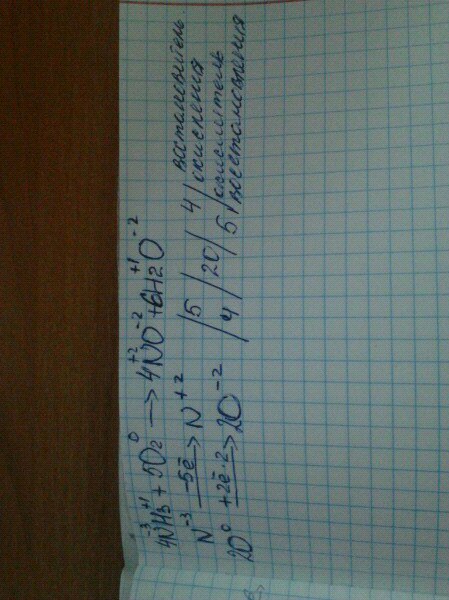 4N⁻³H₃⁺¹ + 5O₂⁰ → 4N⁺²O⁻² + 6H₂⁺¹O⁻²
N⁻³ −5ē → N⁺² / 5 / 20 / 4 / востановитель окисления
2O⁰ +2ē·2 → 2O⁻² / 4 / 5 / окислитель восстановления